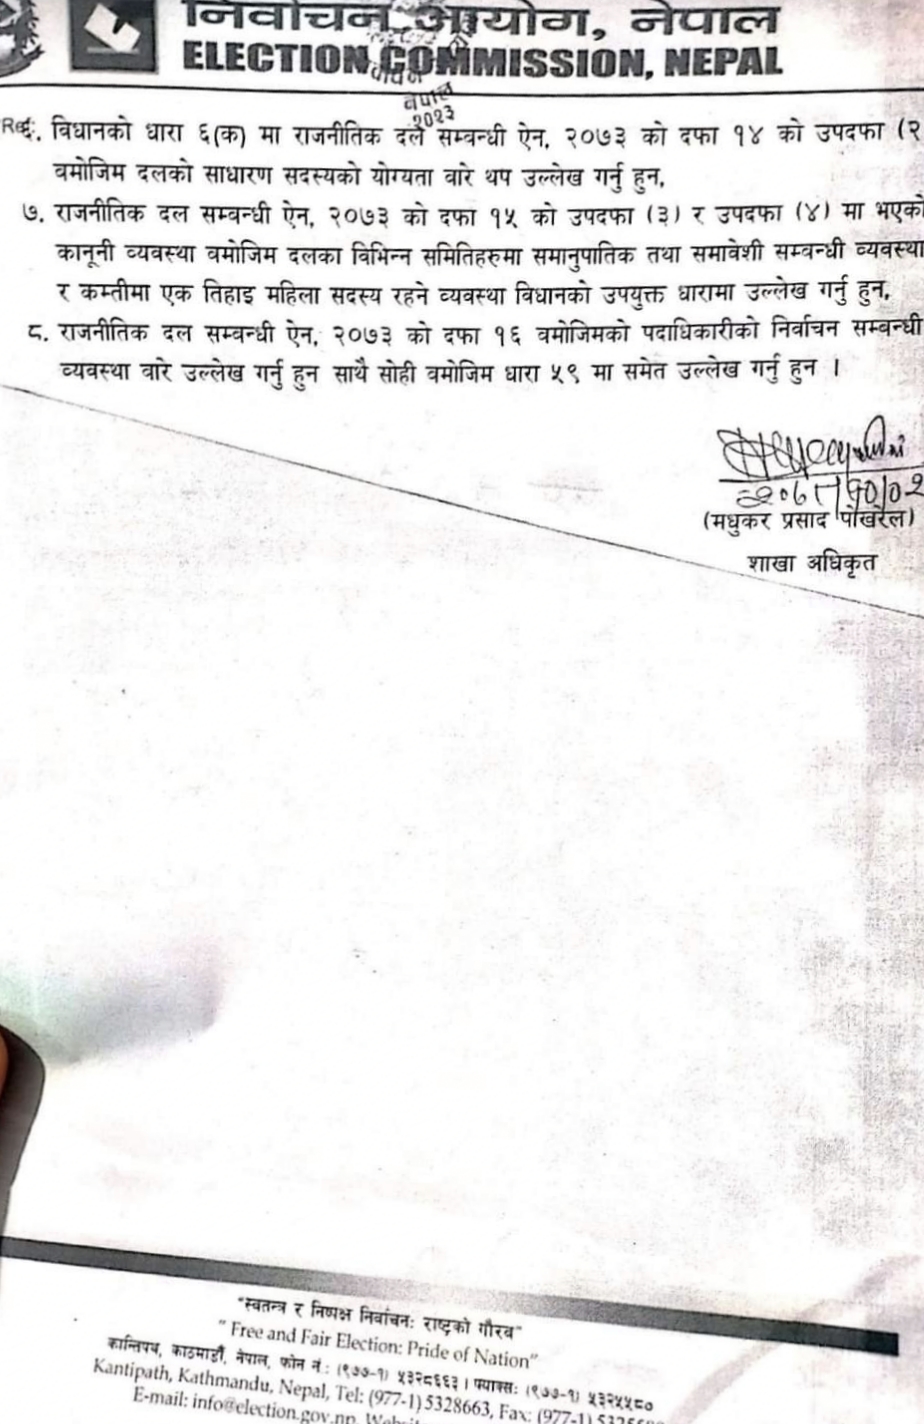 निर्वाचन आयोग, नेपाल
ELECTION COMMISSION, NEPAL
नेपाल
2023
६. विधानको धारा ६(क) मा राजनीतिक दल सम्बन्धी ऐन, २०७३ को दफा १४ को उपदफा (२
वमोजिम दलको साधारण सदस्यको योग्यता वारे थप उल्लेख गर्नु हुन,
७. राजनीतिक दल सम्बन्धी ऐन, २०७३ को दफा १५ को उपदफा (३) र उपदफा (४) मा भएको
कानूनी व्यवस्था वमोजिम दलका विभिन्न समितिहरुमा समानुपातिक तथा समावेशी सम्बन्धी व्यवस्था
र कम्तीमा एक तिहाइ महिला सदस्य रहने व्यवस्था विधानको उपयुक्त धारामा उल्लेख गर्नु हुन,
८. राजनीतिक दल सम्बन्धी ऐन, २०७३ को दफा १६ वमोजिमको पदाधिकारीको निर्वाचन सम्बन्धी
व्यवस्था वारे उल्लेख गर्नु हुन साथै सोही वमोजिम धारा ५९ मा समेत उल्लेख गर्नु हुन ।
(मधुकर प्रसाद पोखरेल)
शाखा अधिकृत
"स्वतन्त्र र निष्पक्ष निर्वाचनः राष्ट्रको गौरव"
" Free and Fair Election: Pride of Nation"
कान्तिपथ, काठमाडौं, नेपाल, फोन नं : (९७७-१) ५३२८६६३ । फ्याक्स: (९७७-१) ५३२५५८०
Kantipath, Kathmandu, Nepal, Tel: (977-1) 5328663, Fax: (977-1)
E-mail: info@election.gov.np,